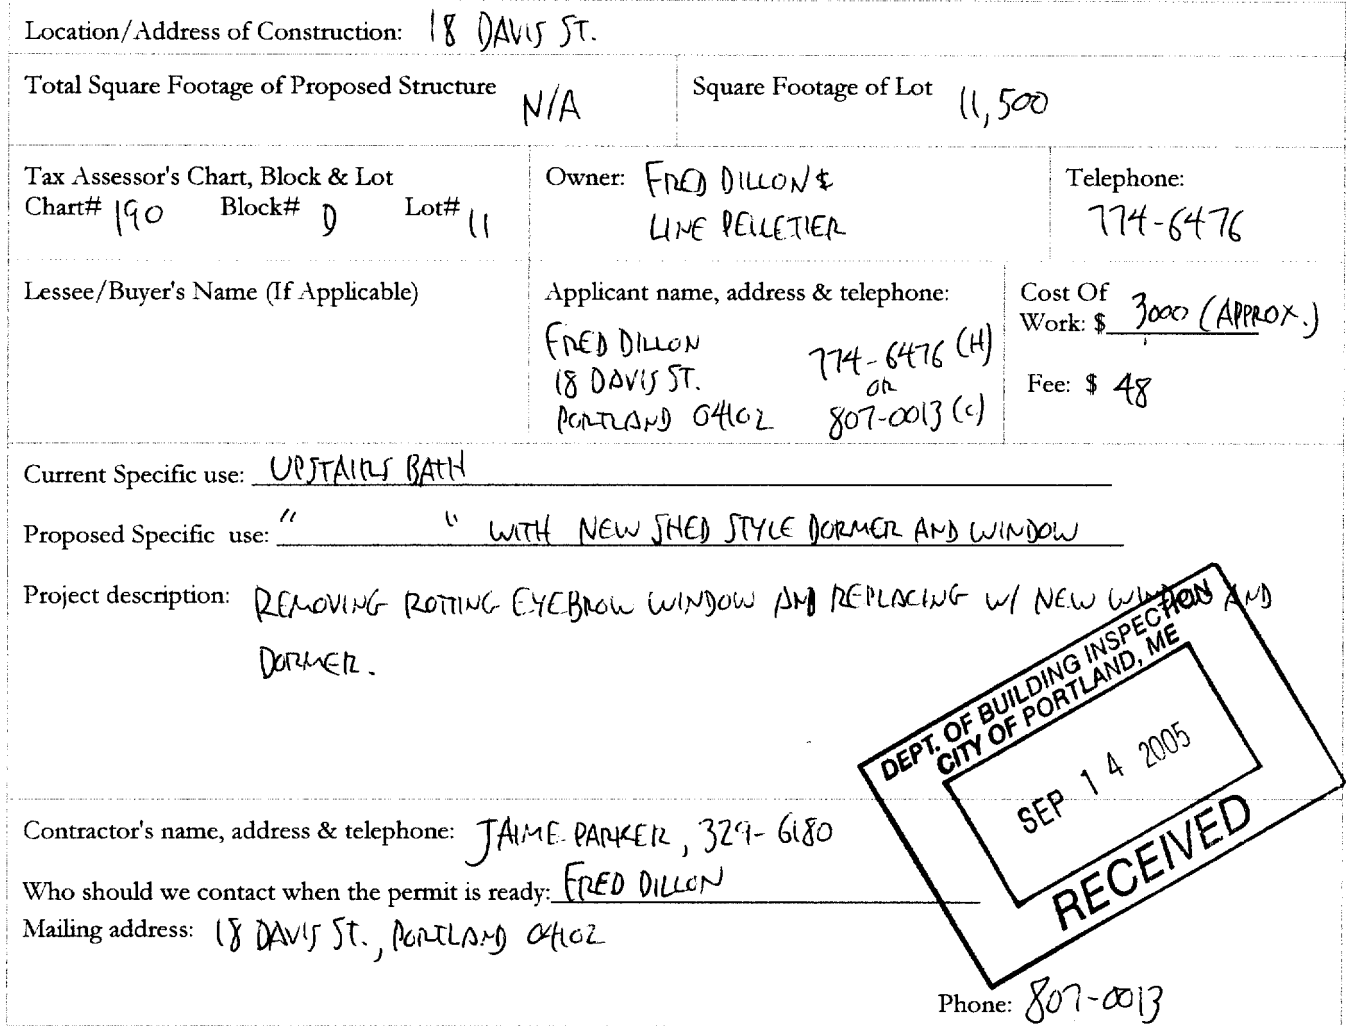 Location/Address of Construction: 18 DAVIS ST.
Total Square Footage of Proposed Structure N/A
Square Footage of Lot 11,500
Tax Assessor's Chart, Block & Lot
Chart# 190 Block# D Lot# 11
Owner: FRED DILLON &
LINE PELLETIER
Telephone:
774-6476
Lessee/Buyer's Name (If Applicable)
Applicant name, address & telephone:
FRED DILLON 774-6476 (H)
18 DAVIS ST. OR
PORTLAND 04102 807-0013 (c)
Cost Of
Work: $ 3000 (APPROX.)
Fee: $ 48
Current Specific use: UPSTAIRS BATH
Proposed Specific use: " " WITH NEW SHED STYLE DORMER AND WINDOW
Project description: REMOVING ROTTING EYEBROW WINDOW AND REPLACING W/ NEW WINDOW AND
DORMER.
DEPT. OF BUILDING INSPECTION
CITY OF PORTLAND, ME
SEP 14 2005
RECEIVED
Contractor's name, address & telephone: JAIME PARKER, 329-6180
Who should we contact when the permit is ready: FRED DILLON
Mailing address: 18 DAVIS ST., PORTLAND 04102
Phone: 807-0013